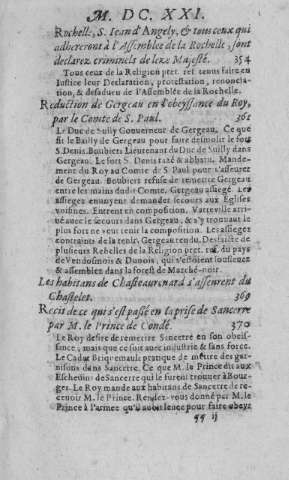 M. DC. XXI.
Rochelle, S. Iean d'Angely, & tous ceux qui
adhereront à l'Assemblée de la Rochelle, sont
declarez criminels de leze Majesté. 354
Tous ceux de la Religion pret. ref. tenus faire en
Iustice leur Declaration, protestation, renoncia-
tion, & desadueu de l'Assemblée de la Rochelle.
Reduction de Gergeau en l'obeyssance du Roy,
par le Comte de S. Paul. 361
Le Duc de Sully Gouuerneur de Gergeau. Ce que
fit le Bailly de Gergeau pour faire desmolir le fort
S. Denis. Boubiers Lieutenant du Duc de Sully dans
Gergeau. Le fort S. Denis razé & abbatu. Mande-
ment du Roy au Comte de S. Paul pour s'asseurer
de Gergeau. Boubiers refuse de remettre Gergeau
entre les mains dudit Comte. Gergeau assiegé. Les
assiegez enuoyent demander secours aux Eglises
voisines. Entrent en composition. Vatteville arri-
ue auec le secours dans Gergeau, & s'y trouuant le
plus fort ne veut tenir la composition. Les assiegez
contraints de la tenir. Gergeau rendu. Desfaicte de
plusieurs Rebelles de la Religion pret. ref. du pays
de Vendosmois & Dunois, qui s'estoient sousleuez
& assemblez dans la forest de Marché-noir.
Les habitans de Chasteaurenard s'asseurent du
Chastelet. 369
Recit de ce qui s'est passé en la prise de Sancerre
par M. le Prince de Condé. 370
Le Roy desire de remettre Sancerre en son obeis-
sance, mais que ce soit auec industrie & sans force.
Le Cadet Briquemault pratiqué de mettre des gar-
nisons dans Sancerre. Ce que M. le Prince dit aux
Escheuins de Sancerre qui le furent trouuer à Bour-
ges. Le Roy mande aux habitans de Sancerre de re-
ceuoir M. le Prince. Rendez-vous donné par M. le
Prince à l'armee qu'il auoit leuee pour faire obeyr
¶¶ ij